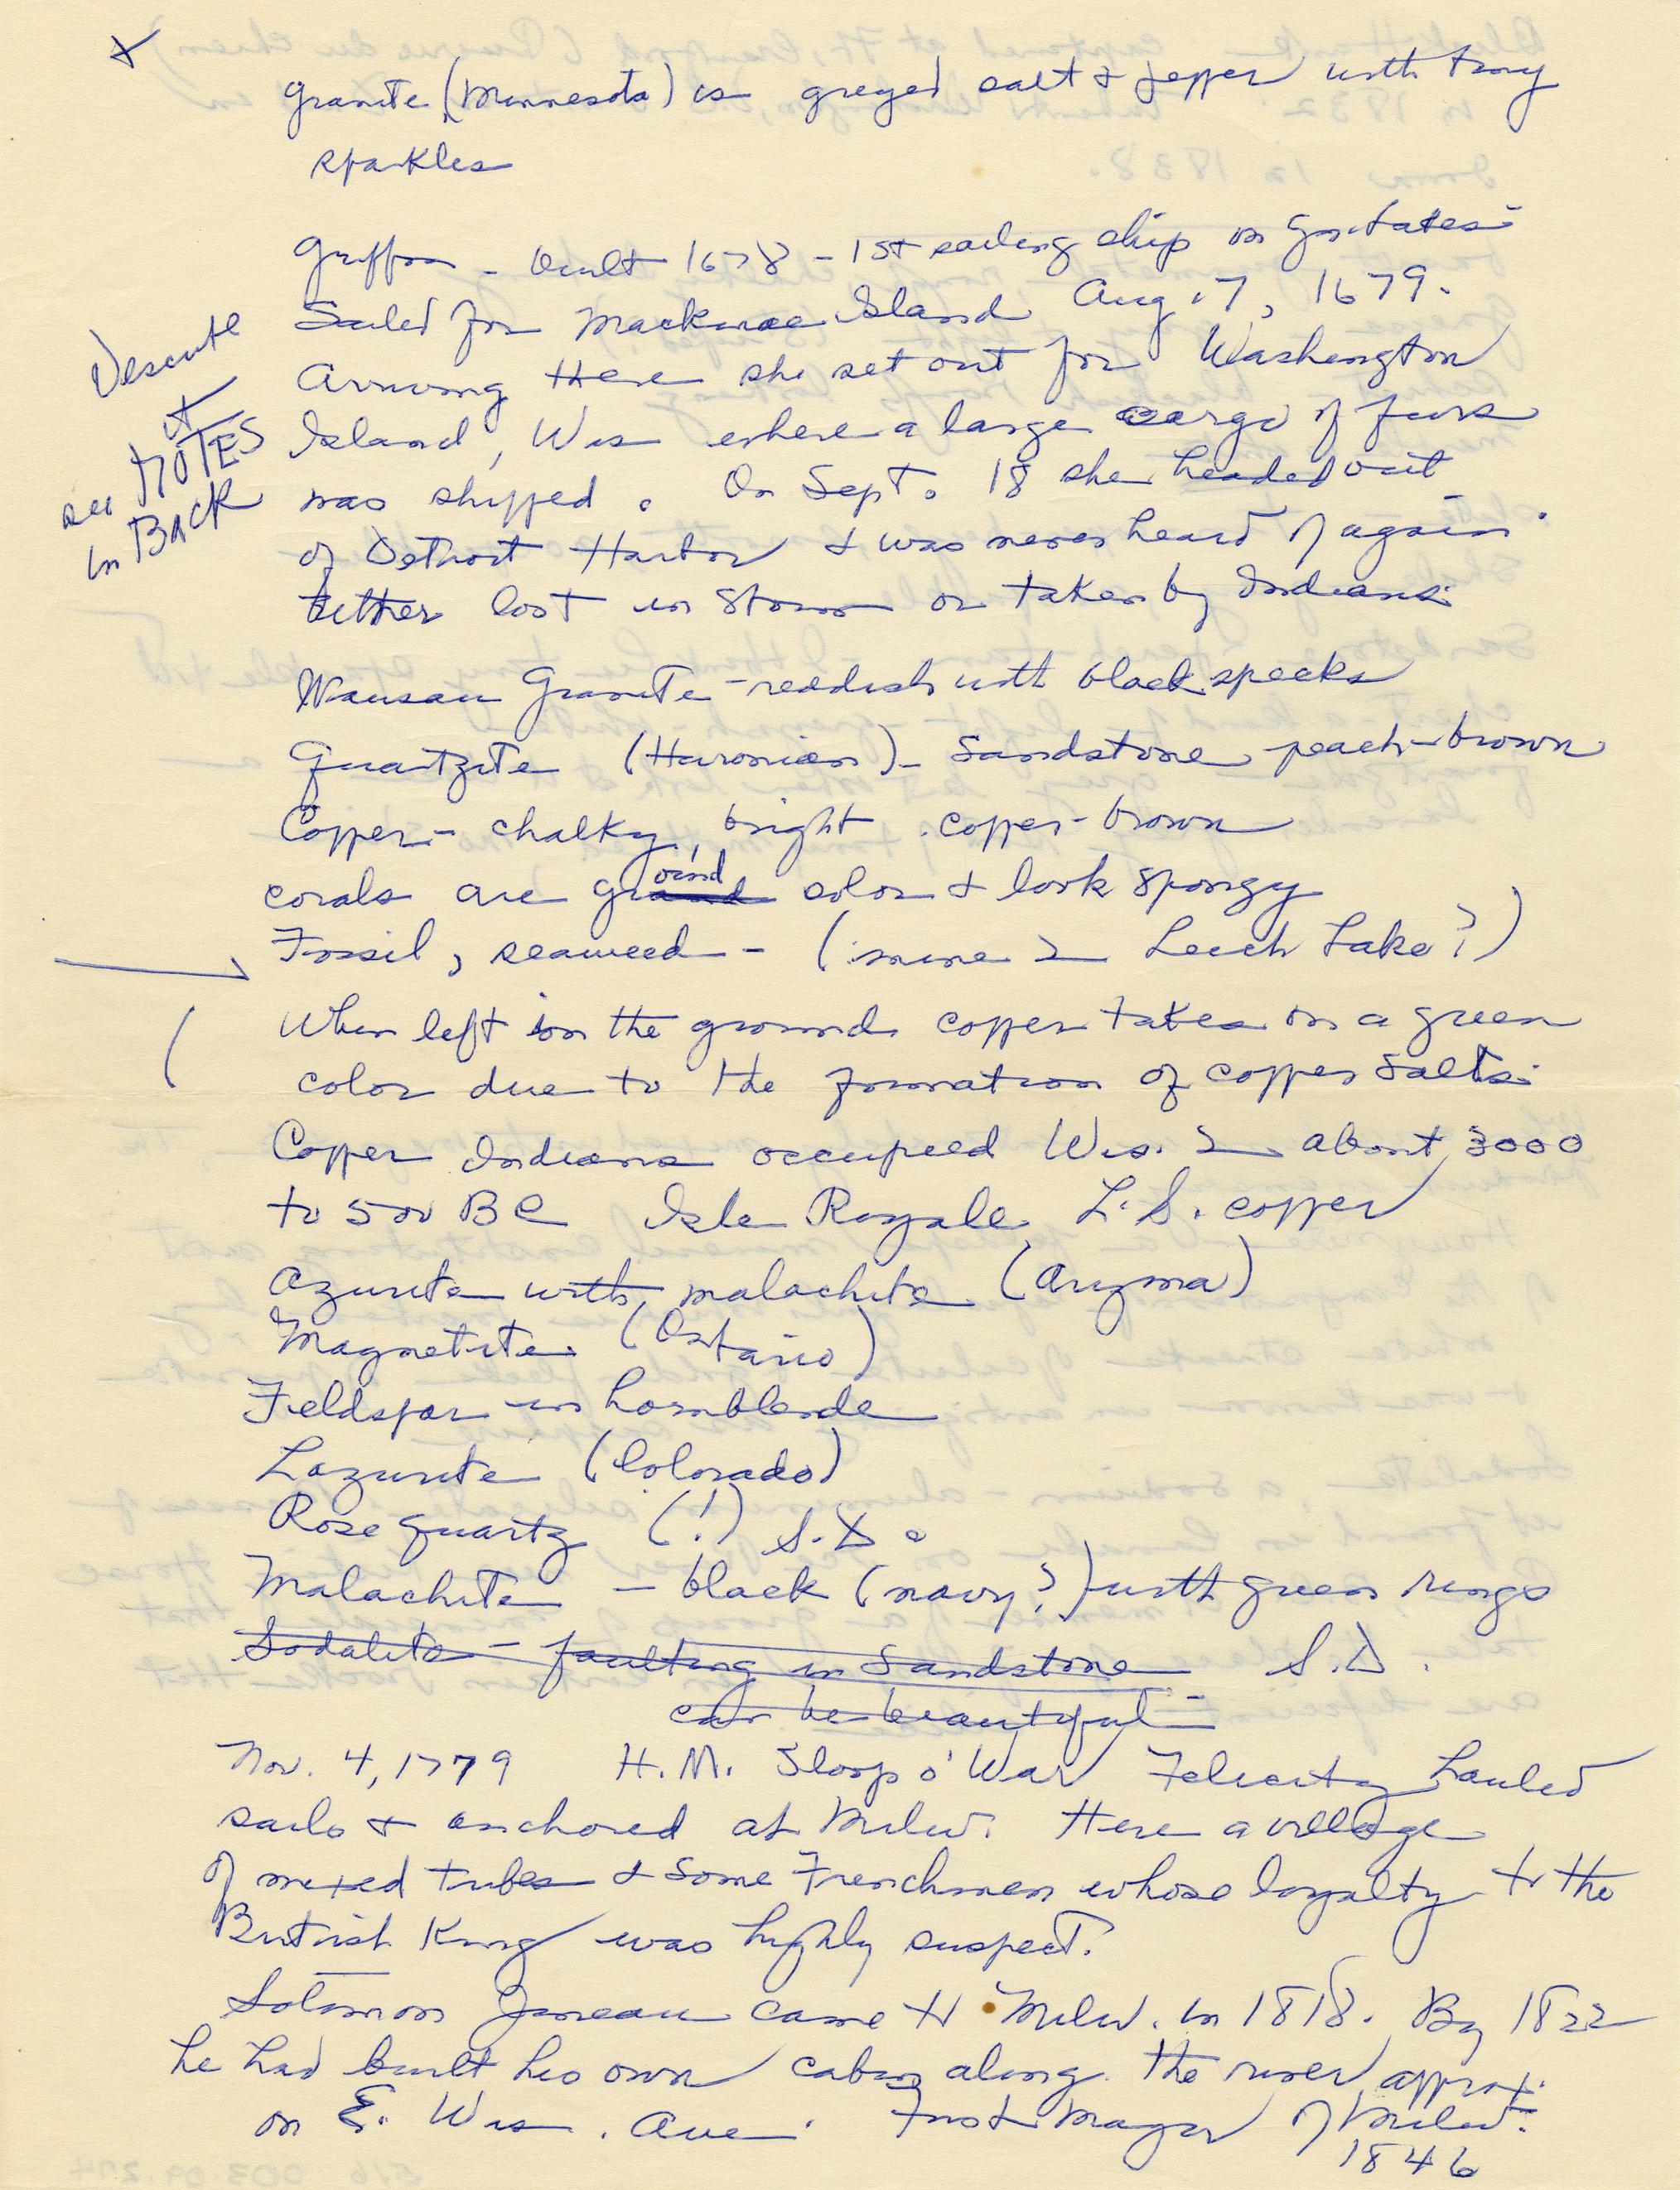 x
granite (Minnesota) is greyed salt & pepper with tiny
sparkles
Griffon - built 1678 - 1st sailing ship on Gr. Lakes.
Sailed for Mackinac Island Aug 17, 1679.
Arriving there she set out for Washington
Island, Wis where a large cargo of furs
was shipped. On Sept. 18 she headed out
of Detroit Harbor & was never heard of again.
Either lost in storm or taken by Indians.
Describe
it
see NOTES
in BACK
Wausau Granite - reddish with black specks
Quartzite (Huronian) - Sandstone peach-brown
Copper - chalky, bright copper-brown
corals are grand oind color & look spongy
Fossil, seaweed - (mine Leech Lake?)
( When left in the ground copper takes on a green
color due to the formation of copper salts.
Copper Indians occupied Wis. about 3000
to 500 BC Isle Royale, L.S. copper
Azurite with malachite (Arizona)
Magnetite (Ontario)
Fieldspar in hornblende
Lazurite (Colorado)
Rose quartz (!) S.D.
Malachite - black (navy?) with green rings
Sodalite - faulting in Sandstone S.D.
can be beautiful -
Nov. 4, 1779 H.M. Sloop o' War Felicity hauled
sails & anchored at Milw. Here a village
of mixed tribes & some Frenchmen whose loyalty to the
British King was highly suspect.
Solomon Juneau came to Milw. in 1818. By 1822
he had built his own cabin along the river approx.
on E. Wis. Ave. First Mayor of Milw.
1846